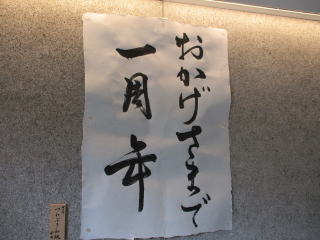 おかげさまで
一周年